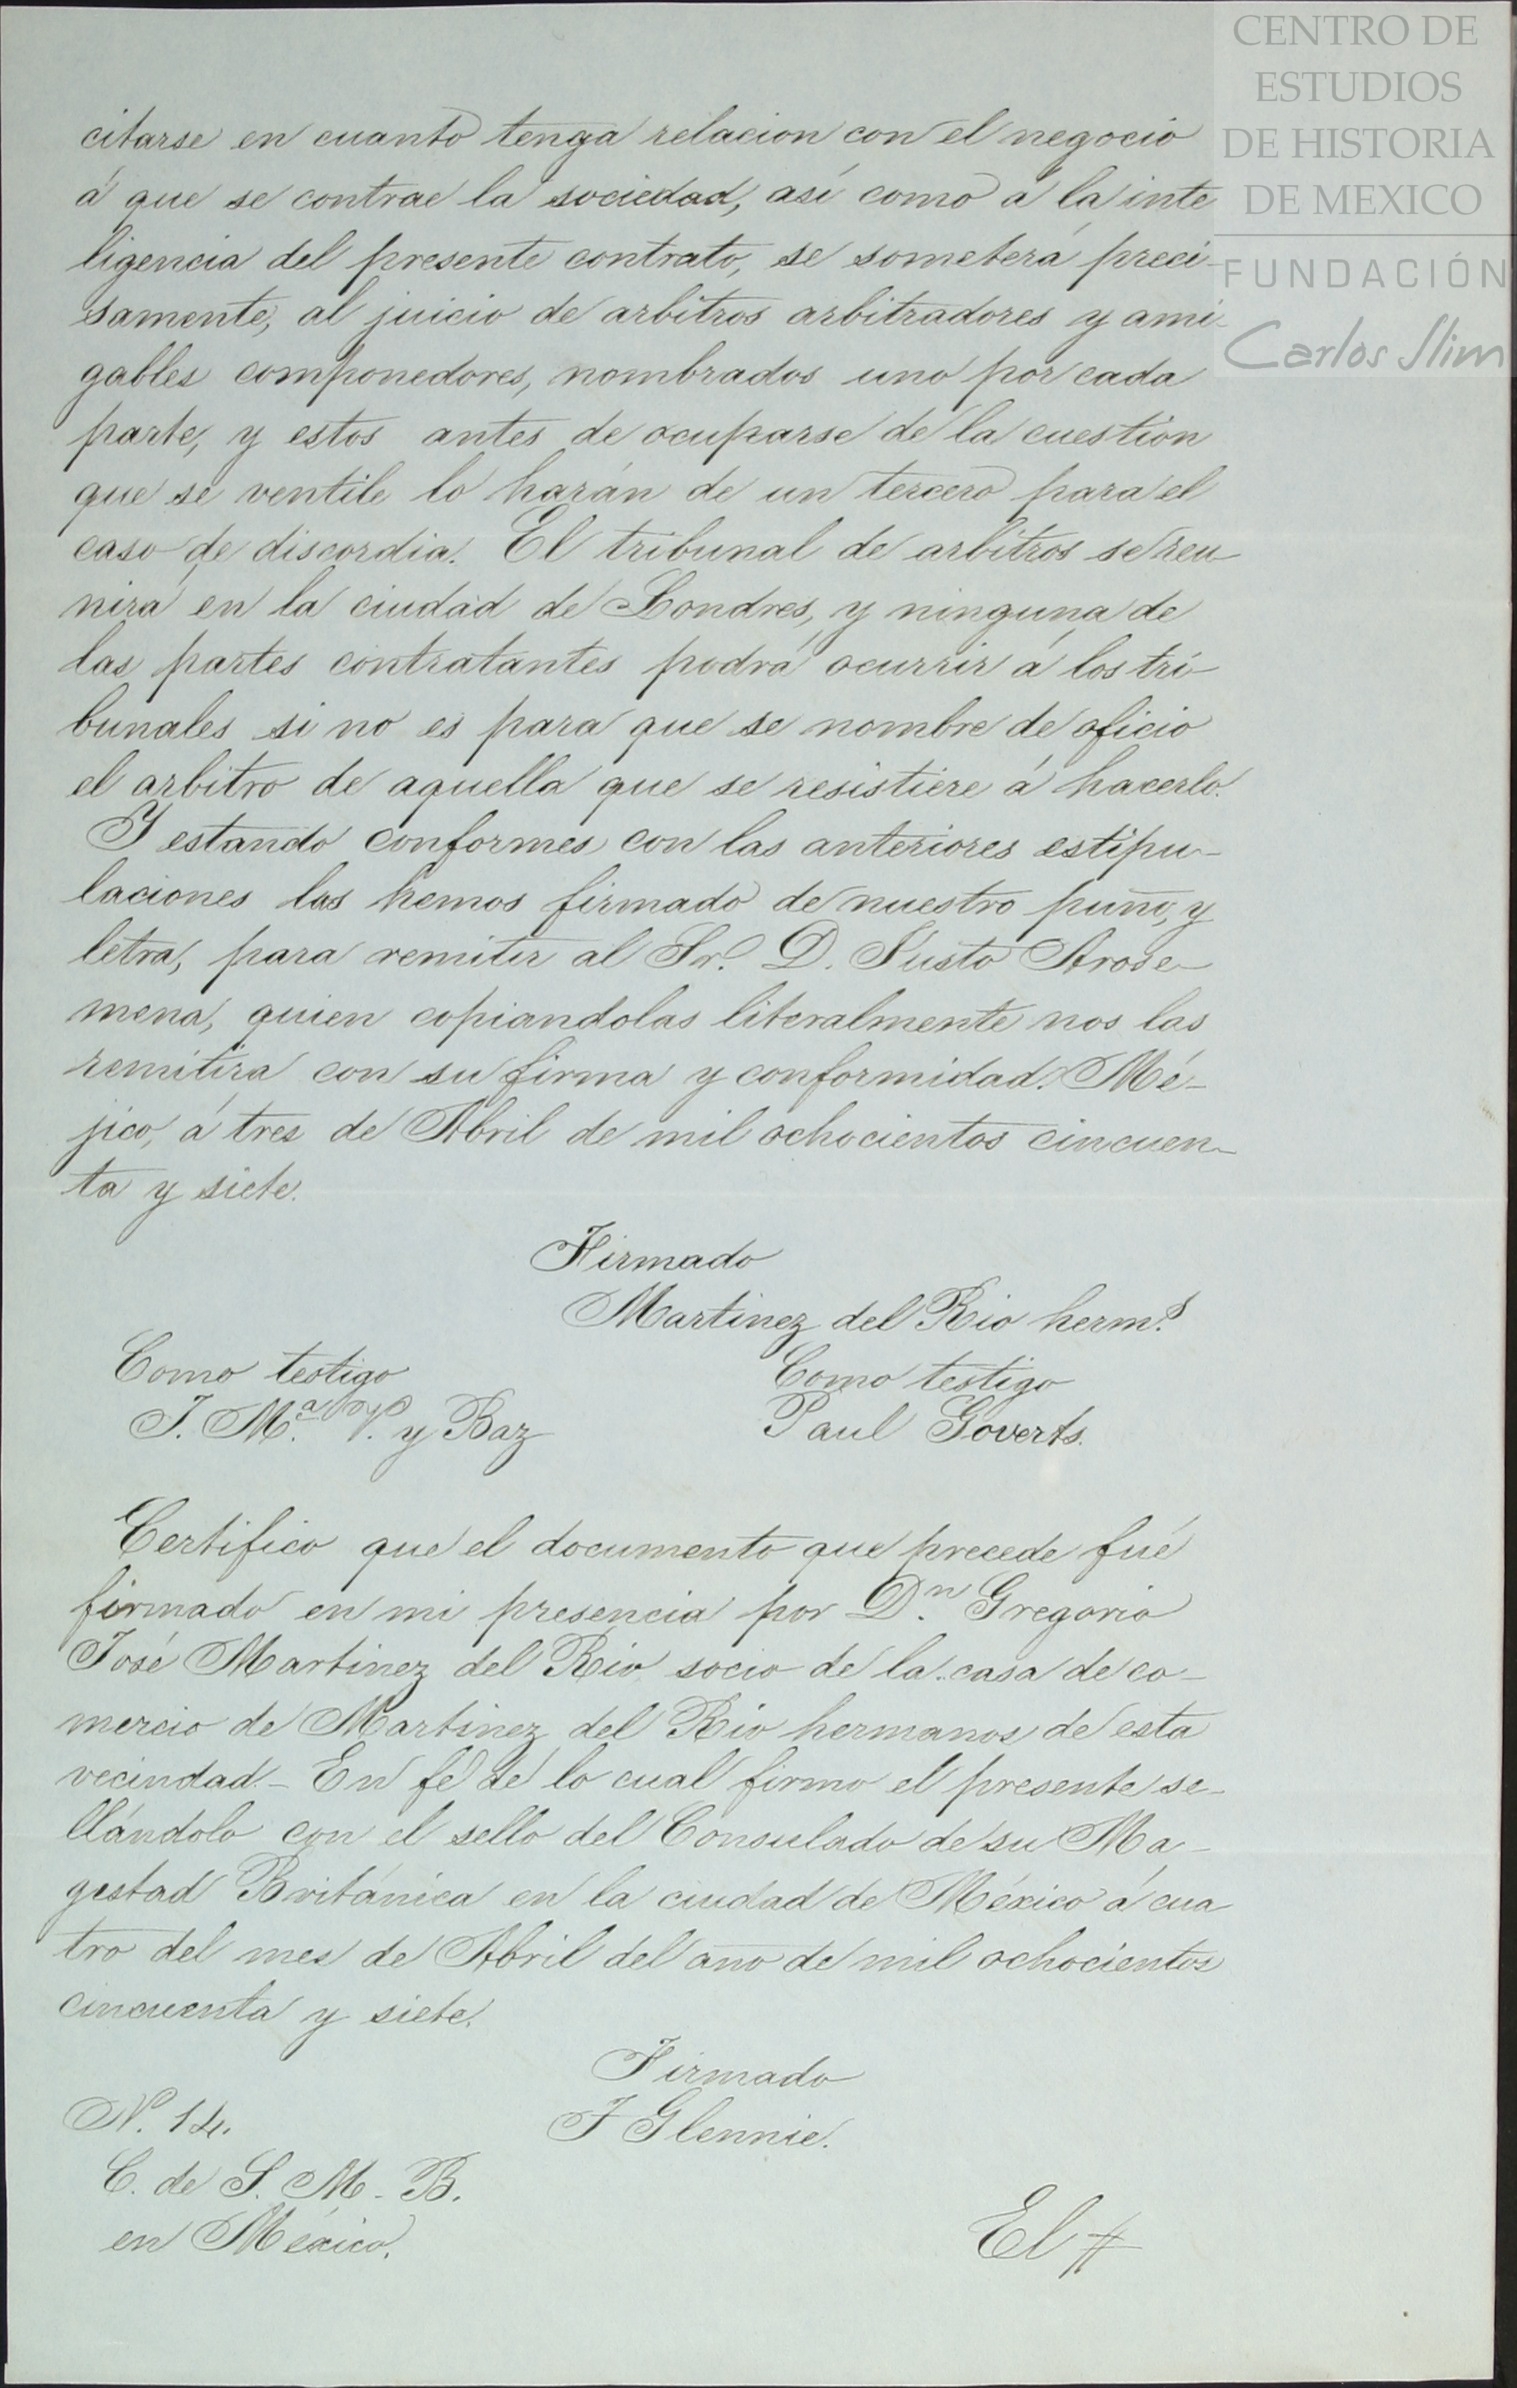 CENTRO DE
ESTUDIOS
DE HISTORIA
DE MEXICO
FUNDACIÓN
Carlos Slim
citarse en cuanto tenga relacion con el negocio
á que se contrae la sociedad, asi como á la inte
ligencia del presente contrato, se someterá preci-
samente, al juicio de arbitros arbitradores y ami-
gables componedores, nombrados uno por cada
parte, y estos antes de ocuparse de la cuestion
que se ventile lo harán de un tercero para el
caso de discordia. El tribunal de arbitros se reu-
nirá en la ciudad de Londres, y ninguna de
las partes contratantes podrá ocurrir á los tri-
bunales si no es para que se nombre de oficio
el arbitro de aquella que se resistiere á hacerlo.
Y estando conformes con las anteriores estipu-
laciones las hemos firmado de nuestro puño, y
letra, para remitir al Sr. D. Justo Arose-
mena, quien copiandolas literalmente nos las
remitira con su firma y conformidad. Mé-
jico, á tres de Abril de mil ochocientos cincuen-
ta y siete.
Firmado
Martinez del Rio herm.s
Como testigo
Como testigo
J. M.a V. y Baz
Paul Goverts.
Certifico que el documento que precede fué
firmado en mi presencia por D.n Gregorio
José Martinez del Rio socio de la casa de co-
mercio de Martinez del Rio hermanos de esta
vecindad. - En fé de lo cual firmo el presente se-
llándolo con el sello del Consulado de su Ma-
gestad Británica en la ciudad de México á cua
tro del mes de Abril del año de mil ochocientos
cincuenta y siete.
Firmado
F Glennie.
N. 14.
C. de S. M. B.
en México.
El #